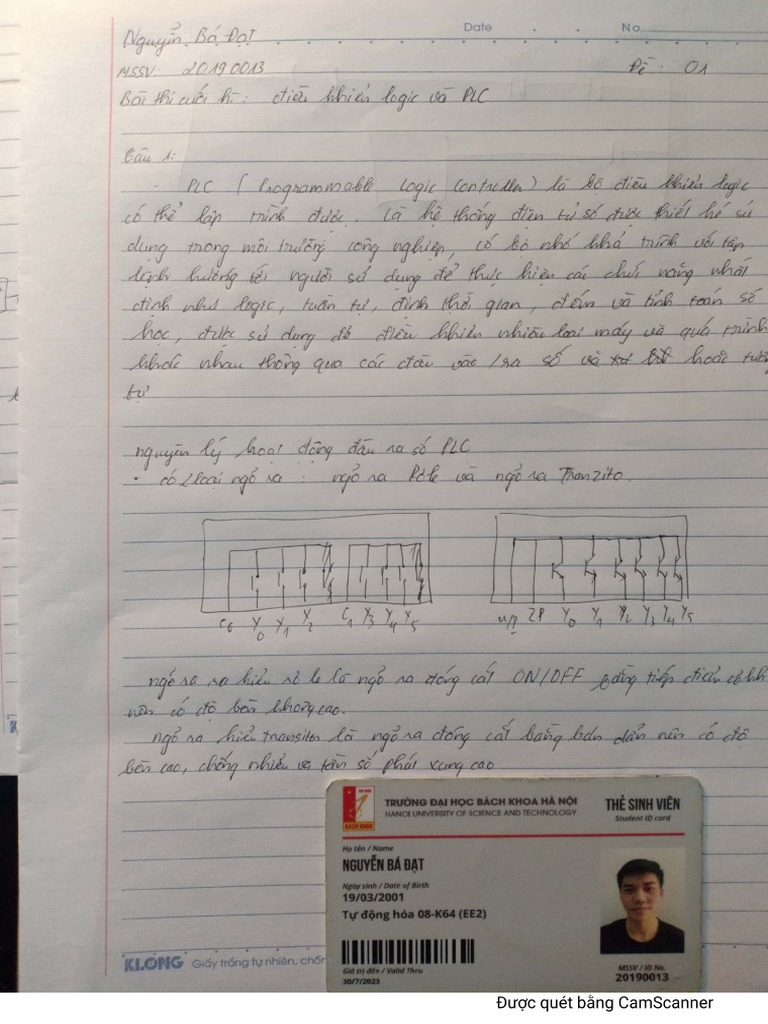 Date No.
Nguyễn Bá Đạt
MSSV: 20190013 Đề: 01
Bài thi cuối kì: điều khiển logic và PLC
Câu 1:
- PLC (Programmable Logic Controller) là bộ điều khiển logic
có thể lập trình được. Là hệ thống điện tử số được thiết kế sử
dụng trong môi trường công nghiệp, có bộ nhớ khả trình với tập
lệnh hướng tới người sử dụng để thực hiện các chức năng nhất
định như logic, tuần tự, định thời gian, đếm và tính toán số
học, được sử dụng để điều khiển nhiều loại máy và quá trình
khác nhau thông qua các đầu vào/ra số hoặc tương
tự
nguyên lý hoạt động đầu ra số PLC
• có 2 loại ngỏ ra: ngỏ ra Rơle và ngỏ ra Tranzito.
C0 Y0 Y1 Y2 C1 Y3 Y4 Y5
ZP Y0 Y1 Y2 Y3 Y4 Y5
ngỏ ra ra kiểu rơ le là ngỏ ra đóng cắt ON/OFF bằng tiếp điểm
nên có độ bền không cao.
ngỏ ra kiểu transitor là ngỏ ra đóng cắt bằng bán dẫn nên có độ
bền cao, chống nhiễu và tần số phát xung cao
BÁCH KHOA
TRƯỜNG ĐẠI HỌC BÁCH KHOA HÀ NỘI THẺ SINH VIÊN
HANOI UNIVERSITY OF SCIENCE AND TECHNOLOGY Student ID card
Họ tên / Name
NGUYỄN BÁ ĐẠT
Ngày sinh / Date of Birth
19/03/2001
Tự động hóa 08-K64 (EE2)
Giá trị đến / Valid Thru
30/7/2023
MSSV / ID No.
20190013
KLONG Giấy trắng tự nhiên, chốn
Được quét bằng CamScanner